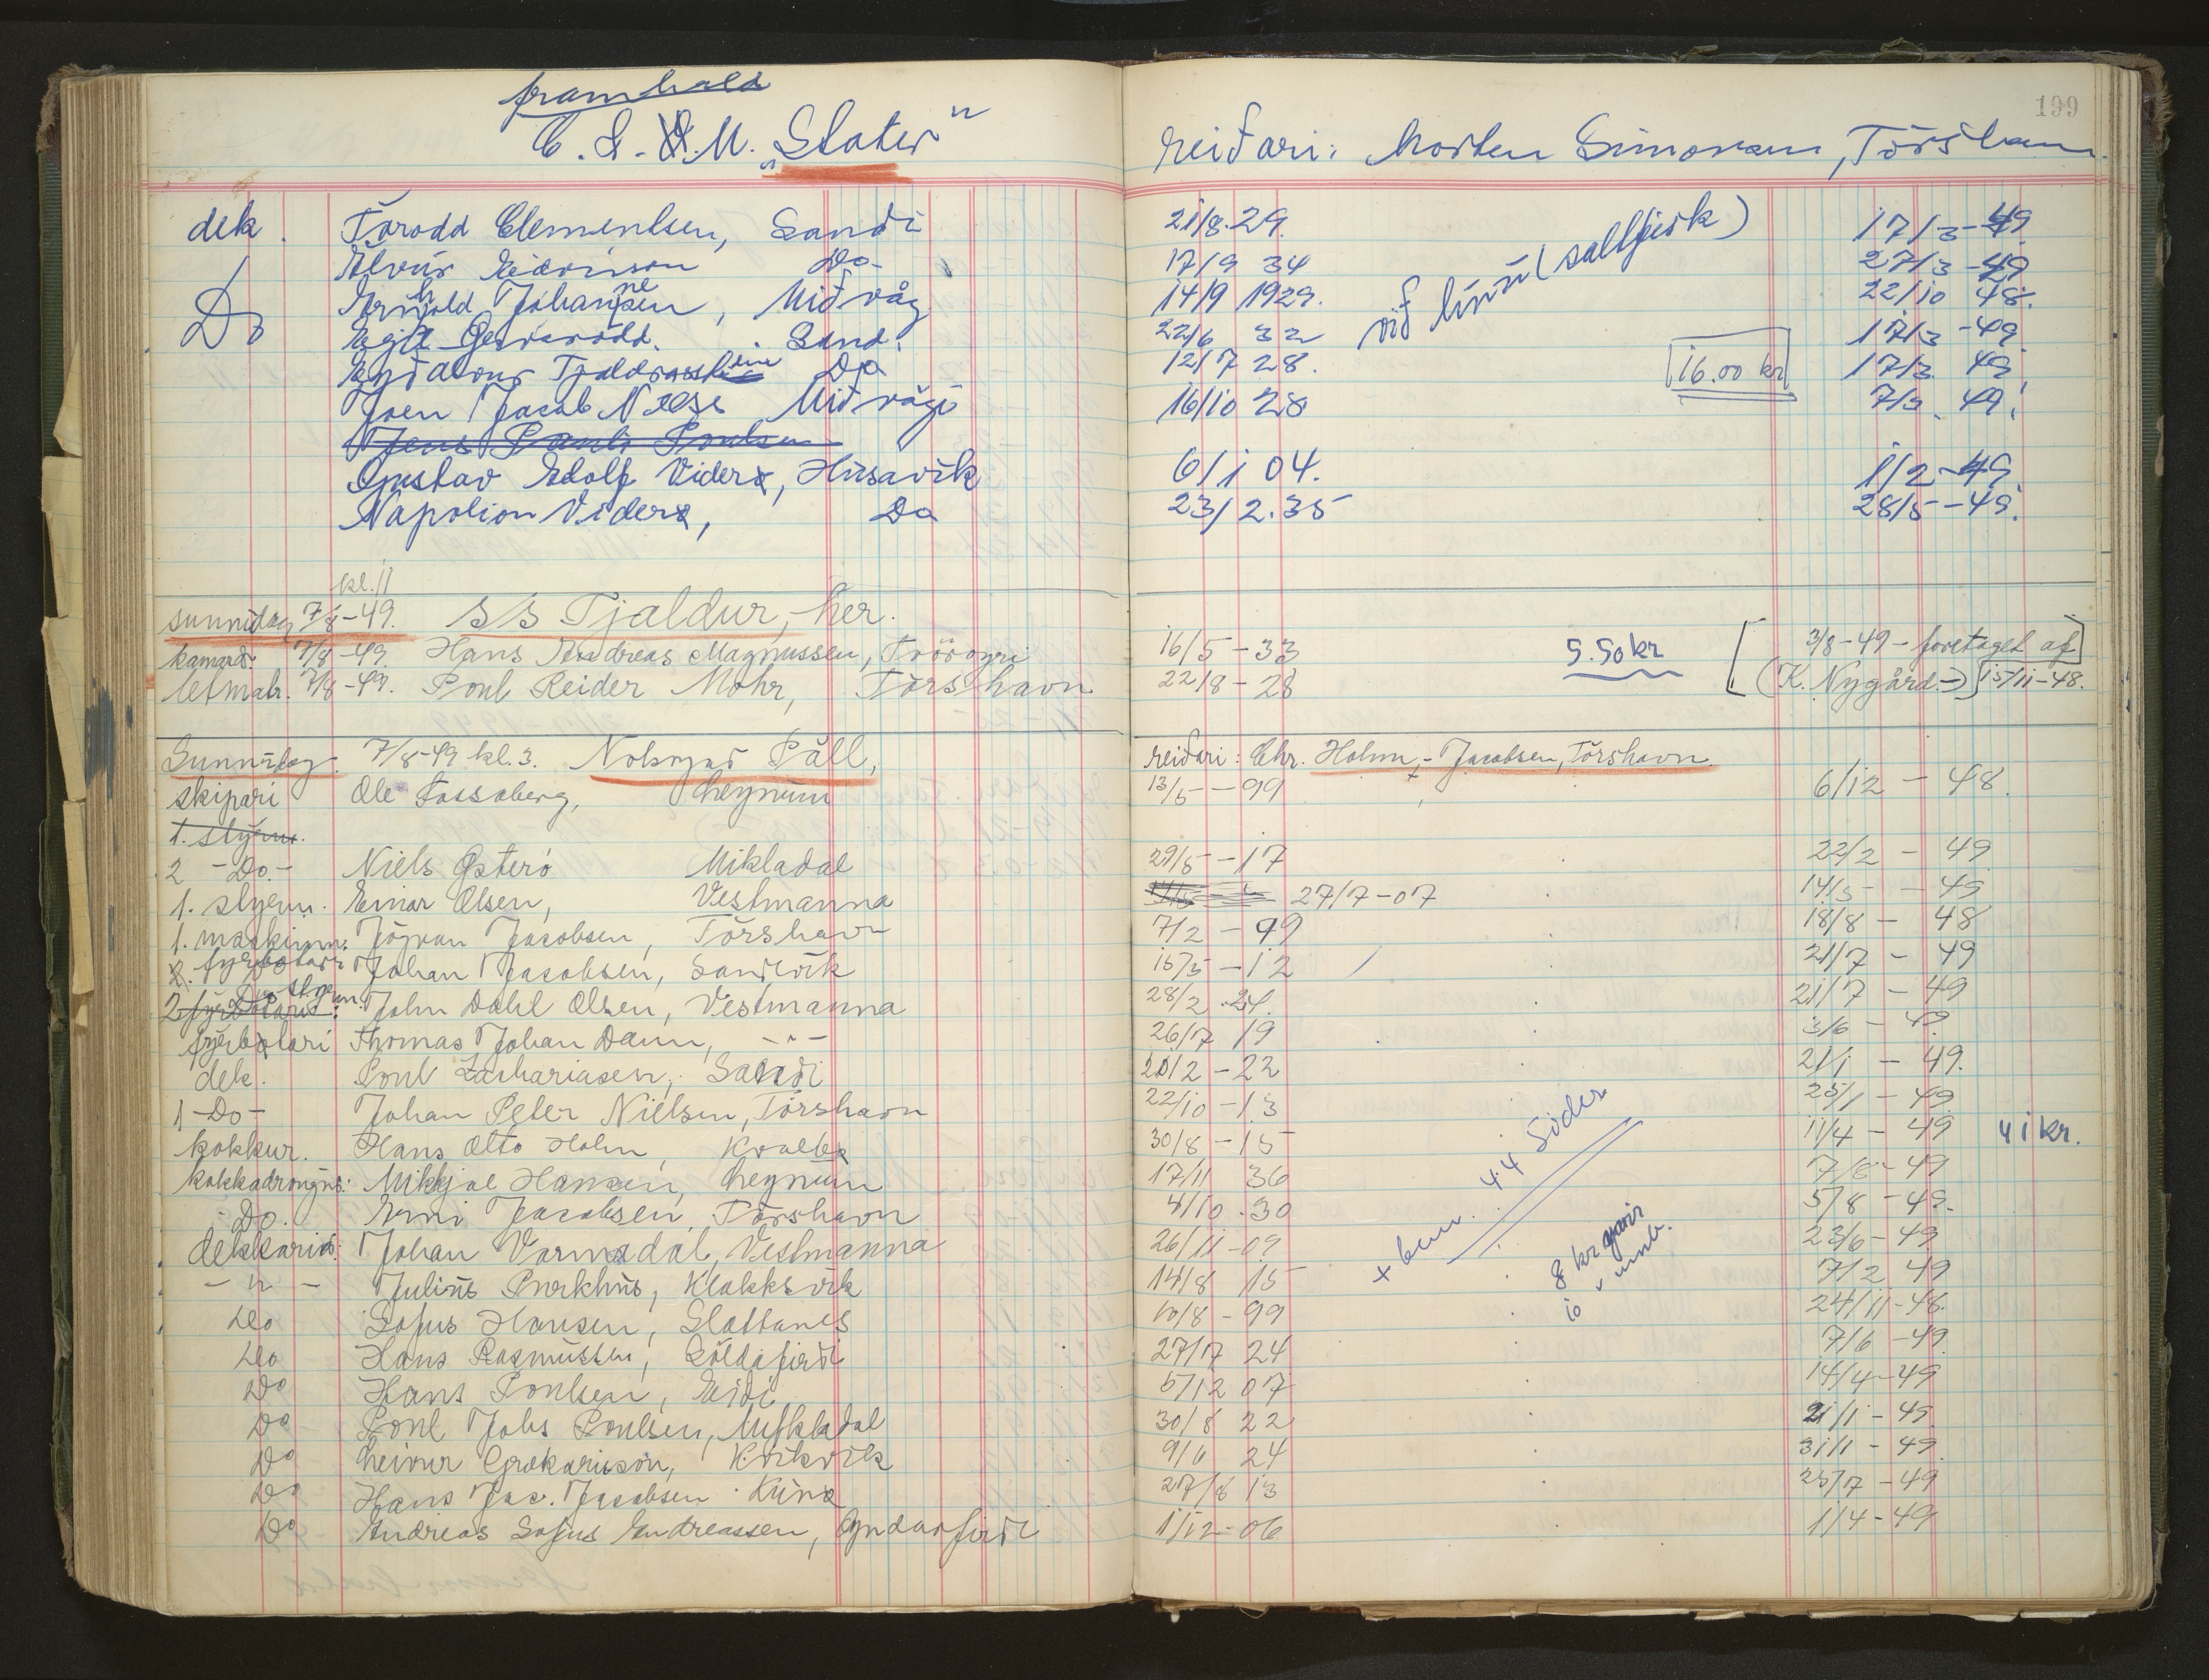 framhald
"Slater"
reiðari: Morten Simonsen, Tórshavn.
199
dek. Tórodd Clementsen, Sandi 21/8.29. 17/3-49
Do 17/9 34 27/3-49
Arnhold Johannesen, Miðvåg 14/9 1929. 22/10 48.
Sand. 22/6 32 17/3-49
Do 12/7 28. 17/3. 49
Joen Jacob Miðvági 16/10 28 49.
við línu (saltfisk)
16.00 kr
Jens Pauli Poulsen
Gustav Adolf Viderø, Húsavík 6/1 04. 1/2-49.
Napolion Viderø, Do 23/2.35 28/5-49.
kl. 11
sunnudag 7/8-49. SS Tjaldur, her.
7/8-49. Hans Andreas Magnussen, Tvöroyri 16/5-33 5.50 kr 3/8-49-foretaget af
letmatr. 7/8-49. Poul Reider Mohr, Tórshavn 22/8-28 (K. Nygård-) 15/11-48.
Sunnudag. 7/8-49 kl. 3. Nólsoyar Páll, reiðari: Chr. Holm-Jacobsen, Tórshavn.
skipari Ole Fossaberg, Leynum 13/5-99 6/12-48.
1. stýrm.
2 -Do.- Niels Østerö Mikladal 29/5-17 22/2-49
1. stýrm. Einar Olsen, Vestmanna 27/7-07 14/5-49
1. maskinm. Jógvan Jacobsen, Tórshavn 7/2-99 18/8-48
2. fýrbøtari Johan Jacobsen, Sandvík 16/5-12 21/7-49
2 fýrbøtari: stýrm. John Dahl Olsen, Vestmanna 28/2.24. 21/7-49
fýrbøtari Thomas Johan Dam, -"- 26/7 19 3/6-49
dek. Poul Zachariasen, Sandi 20/2-22 21/1-49.
1-Do- Johan Peter Nielsen, Tórshavn 22/10-13 25/1-49
kokkur. Hans Otto Holm, Kvalbø 30/8-15 11/4-49 41 kr.
kokkadrongur: Mikkjal Hansen, Leynum 17/11 36 7/8-49
-Do. Arni Jacobsen, Tórshavn 4/10.30 5/8-49.
dekkarar: Johan Vormadal, Vestmanna 26/11-09 23/6-49
-"- Julius Purkhús, Klakksvík 14/8 15 7/2 49
Do Sofus Hansen, Glattanes 10/8-99 24/11-48.
Do Hans Rasmussen, Söldafirði 27/7 24 7/6-49.
Do Hans Poulsen, Eiði 5/12 07 14/4-49
Do Poul Johs Poulsen, Mikladal 30/8 22 21/1-49.
Do Kvikvík 9/6 24 31/1-49.
Do Hans Jac. Jacobsen Kunø 27/8 13 25/7-49
Do Andreas Sofus Andreassen, Oyndarfirði 1/12-06 1/4-49
44 Sider
8 kr
10